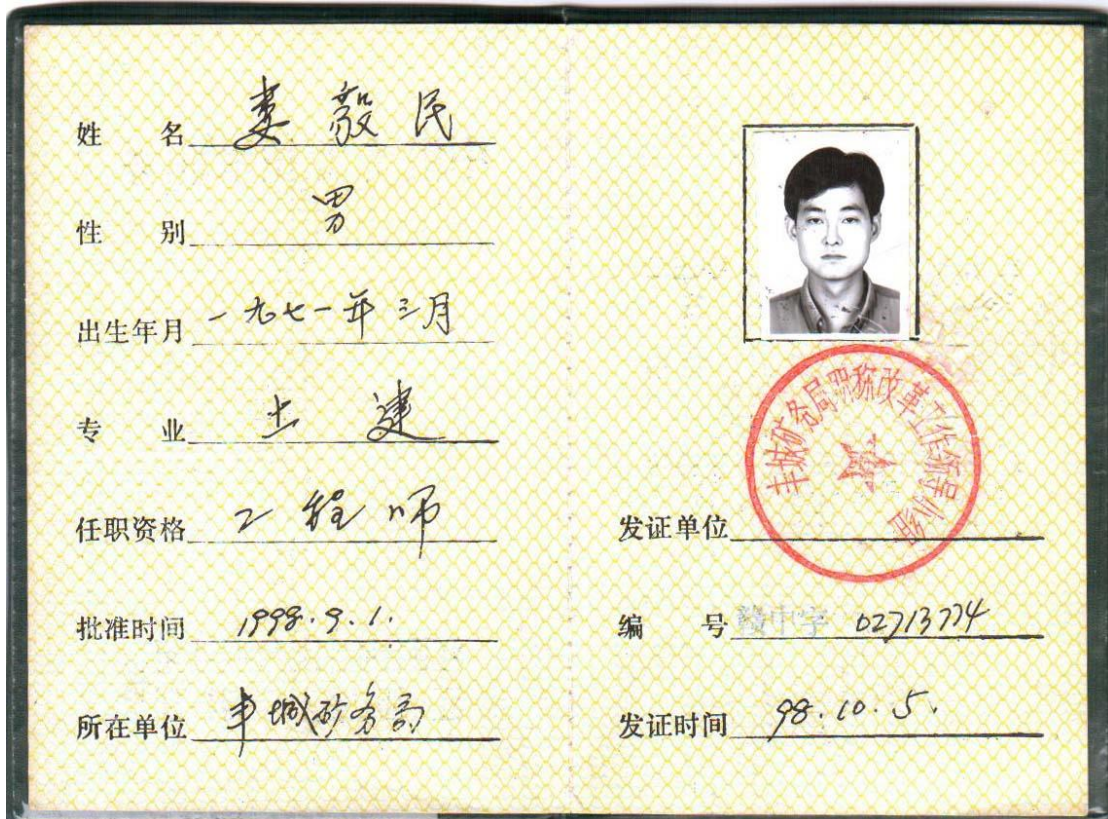 姓名 娄毅民
性别 男
出生年月 一九七一年三月
专业 土建
任职资格 工程师
批准时间 1998.9.1.
所在单位 丰城矿务局
丰城矿务局职称改革工作领导小组
发证单位
编号 赣中字 02713774
发证时间 98.10.5.